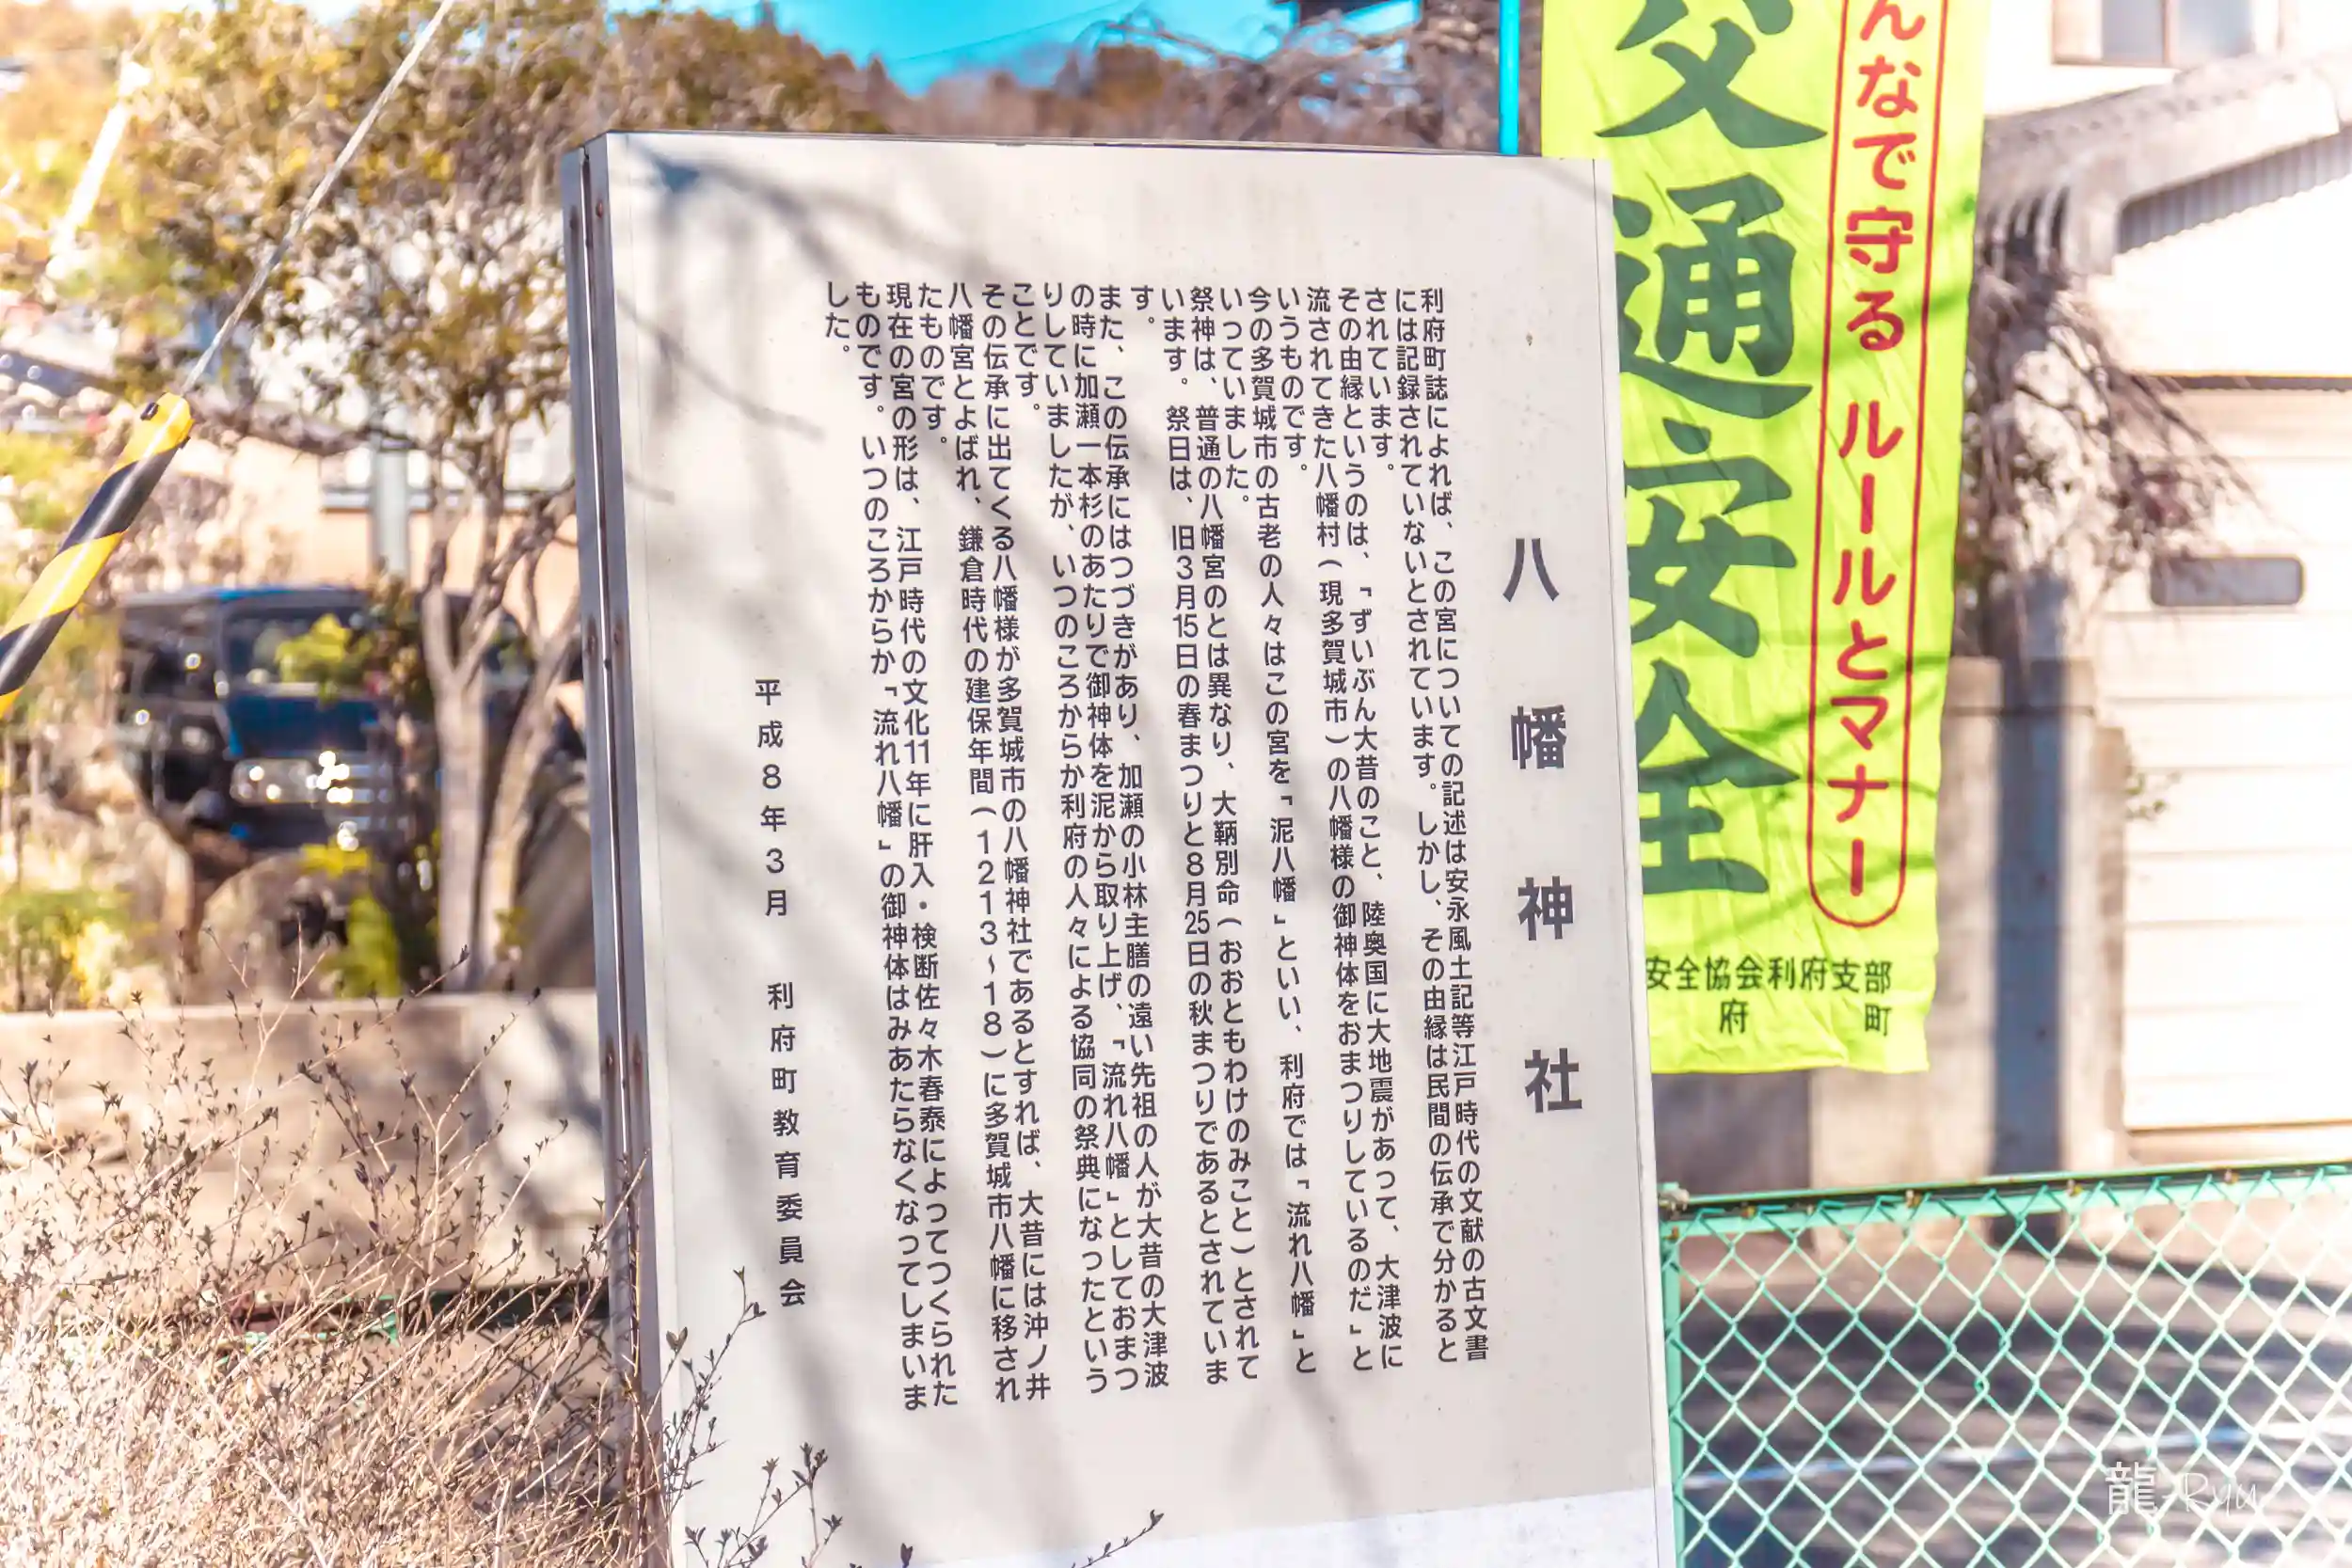 八幡神社
利府町誌によれば、この宮についての記述は安永風土記等江戸時代の文献の古文書
には記録されていないとされています。しかし、その由縁は民間の伝承で分かると
されています。
その由縁というのは、「ずいぶん大昔のこと、陸奥国に大地震があって、大津波に
流されてきた八幡村(現多賀城市)の八幡様の御神体をおまつりしているのだ」と
いうものです。
今の多賀城市の古老の人々はこの宮を「泥八幡」といい、利府では「流れ八幡」と
いっていました。
祭神は、普通の八幡宮のとは異なり、大鞆別命(おおともわけのみこと)とされて
います。祭日は、旧3月15日の春まつりと8月25日の秋まつりであるとされていま
す。
また、この伝承にはつづきがあり、加瀬の小林主膳の遠い先祖の人が大昔の大津波
の時に加瀬一本杉のあたりで御神体を泥から取り上げ、「流れ八幡」としておまつ
りしていましたが、いつのころからか利府の人々による協同の祭典になったという
ことです。
その伝承に出てくる八幡様が多賀城市の八幡神社であるとすれば、大昔には沖ノ井
八幡宮とよばれ、鎌倉時代の建保年間(1213~18)に多賀城市八幡に移され
たものです。
現在の宮の形は、江戸時代の文化11年に肝入・検断佐々木春泰によってつくられた
ものです。いつのころからか「流れ八幡」の御神体はみあたらなくなってしまいま
した。
平成8年3月 利府町教育委員会
んなで守る ルールとマナー
交通安全
安全協会利府支部
府 町
龍 Ryu